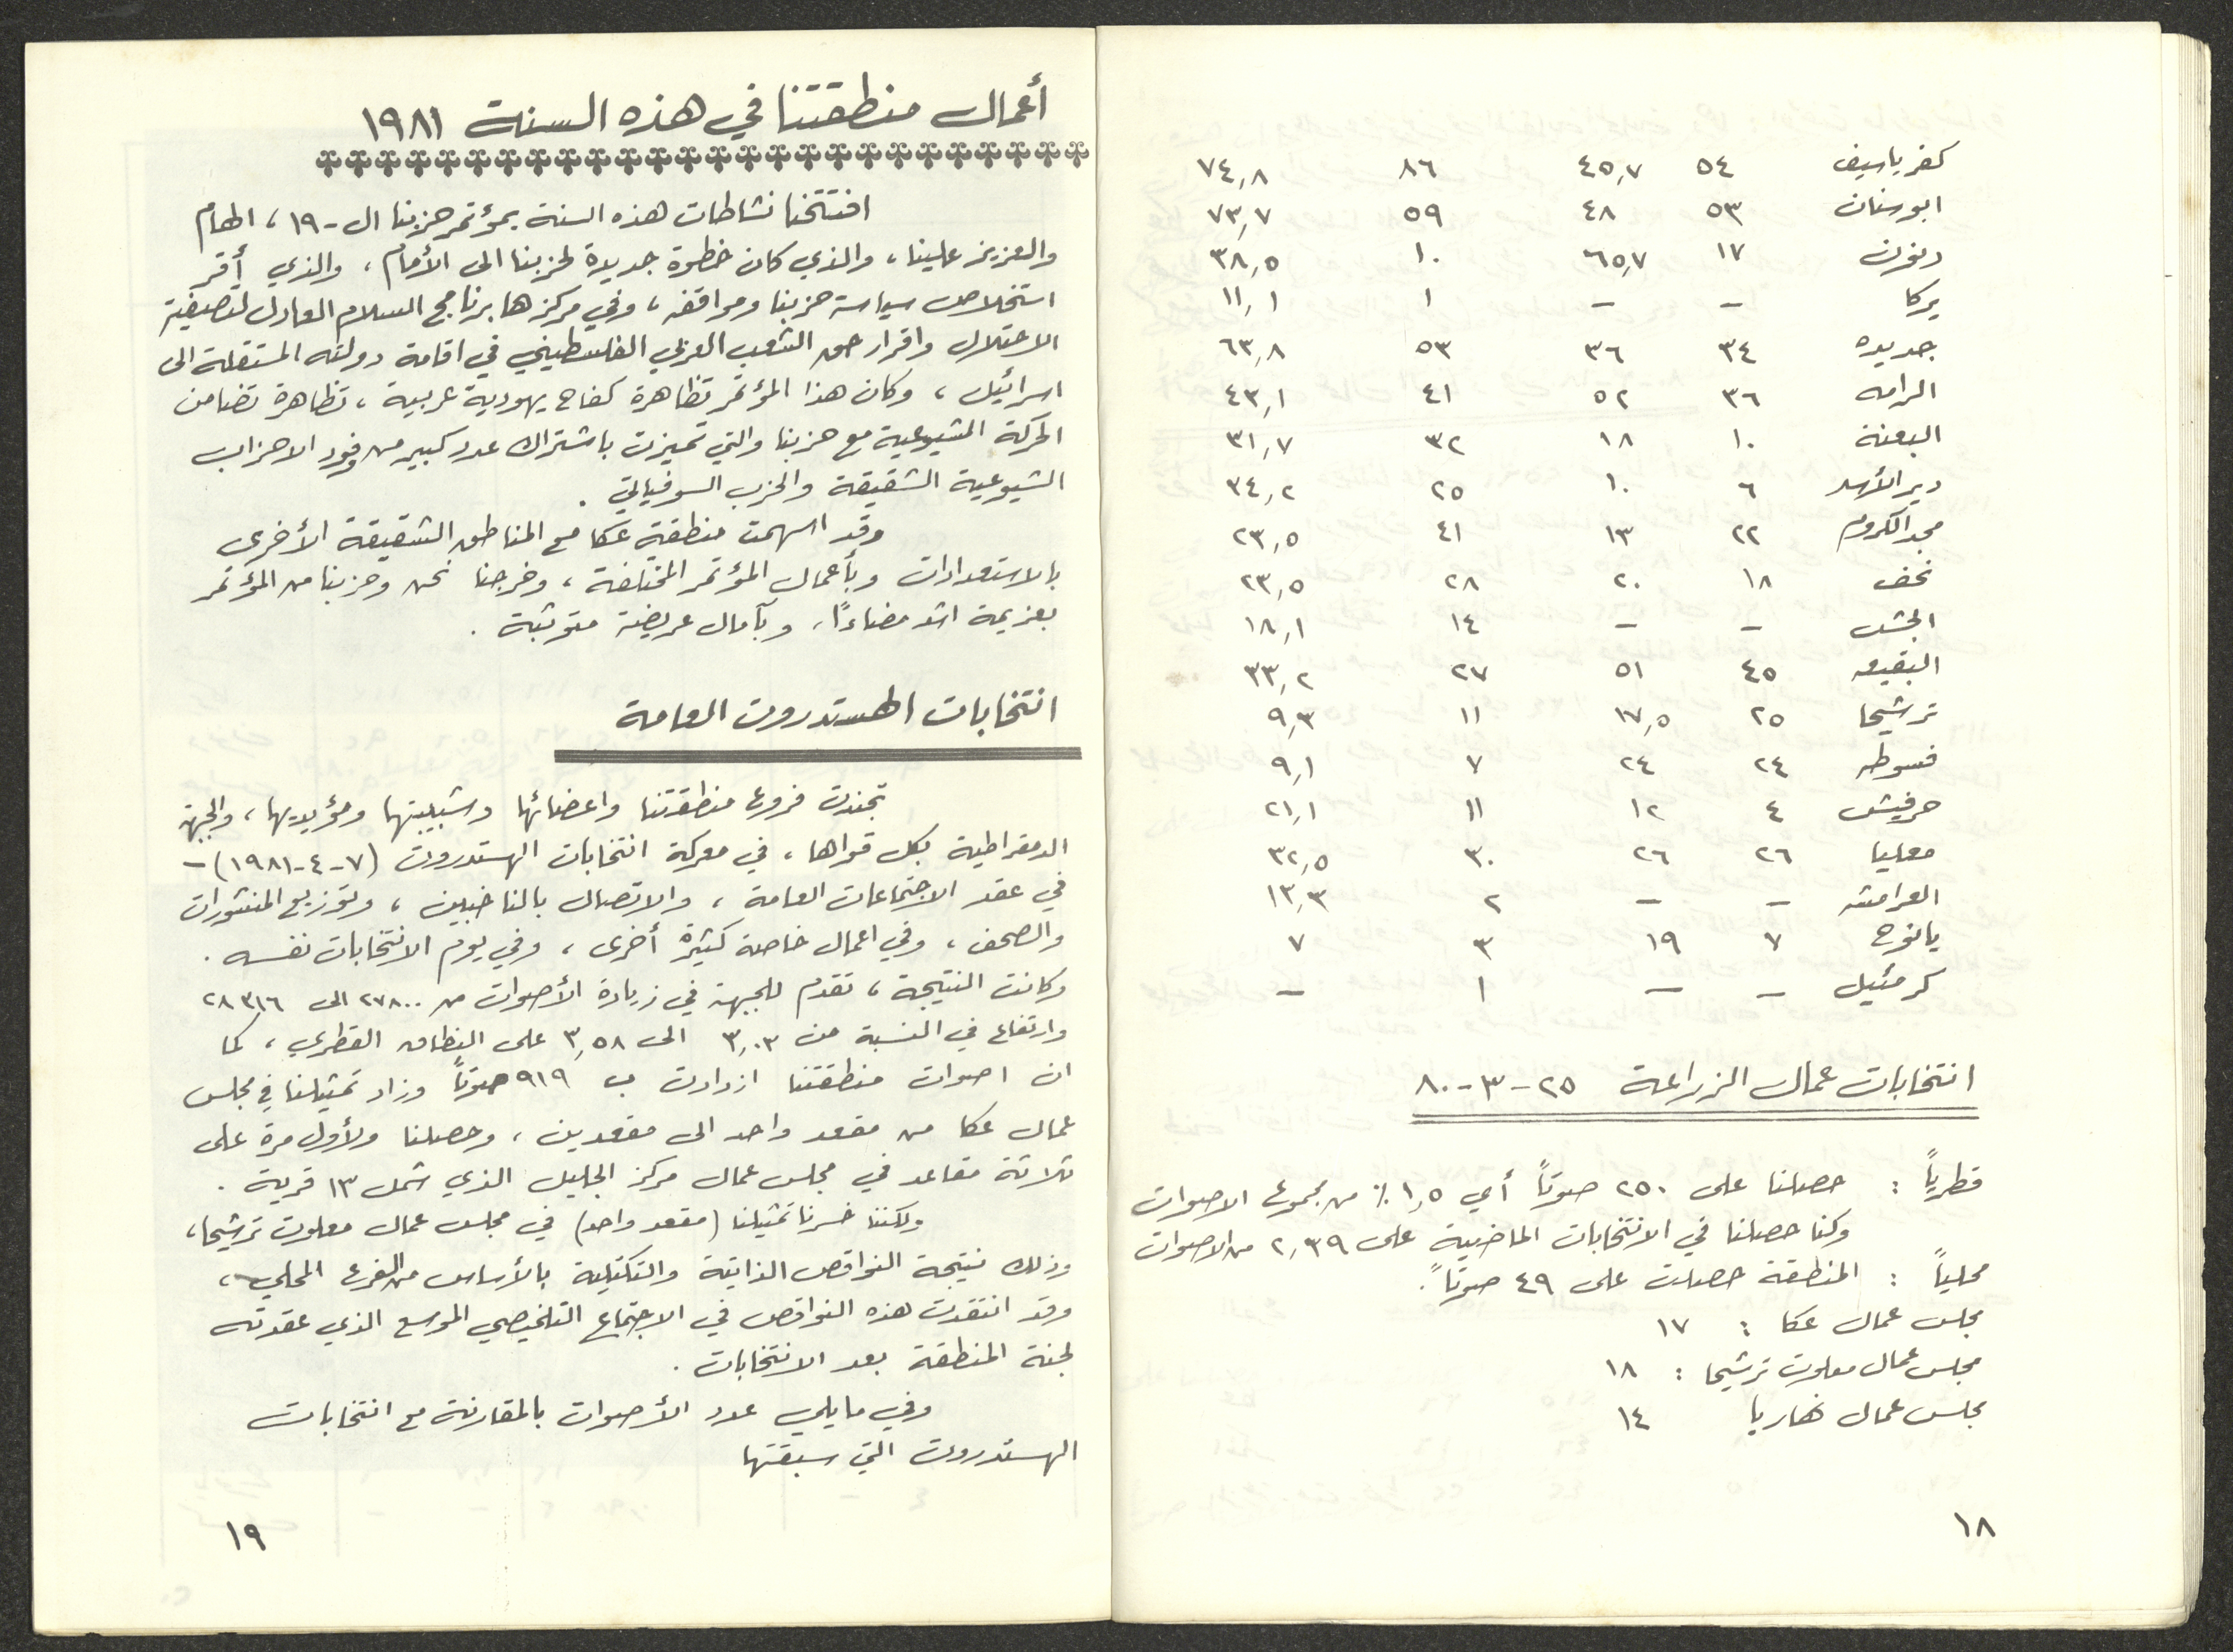 كفر ياسيف ٥٤ ٤٥,٧ ٨٦ ٧٤,٨
ابو سنان ٥٣ ٤٨ ٥٩ ٧٣,٧
١٧ ٦٥,٧ ١٠ ٣٨,٥
يركا – – ١ ١١,١
جديده ٣٤ ٣٦ ٥٣ ٦٣,٨
الرامه ٣٦ ٥٢ ٤١ ٤٣,١
البعنة ١٠ ١٨ ٣٢ ٣١,٧
دير الأسد ٦ ١٠ ٢٥ ٣٤,٢
مجد الكروم ٢٢ ١٣ ٤١ ٢٣,٥
نحف ١٨ ٢٠ ٢٨ ٢٣,٥
الجش – – ١٤ ١٨,١
البقيعه ٤٥ ٥١ ٢٧ ٣٣,٢
ترشيحا ٢٥ ١٧,٥ ١١ ٩,٣
فسوطه ٢٤ ٢٤ ٧ ٩,١
حرفيش ٤ ١٢ ١١ ٢١,١
معليا ٢٦ ٢٦ ٣٠ ٣٢,٥
العرامشه – – ٢ ١٣,٣
يانوح ٧ ١٩ ٣ ٧
كرمئيل – – ١ –
انتخابات عمال الزراعة ٢٥-٣-٨٠
قطرياً : حصلنا على ٢٥٠ صوتاً أي ١,٥ ٪ من مجموع الاصوات
وكنا حصلنا في الانتخابات الماضية على ٢,٣٩ من الاصوات
محلياً : المنطقة حصلت على ٤٩ صوتاً.
مجلس عمال عكا : ١٧
مجلس عمال معلوت ترشيحا : ١٨
مجلس عمال نهاريا ١٤
١٨
أعمال منطقتنا في هذه السنة ١٩٨١
افتتحنا نشاطات هذه السنة بمؤتمر حزبنا ال-١٩، الهام
والعزيز علينا، والذي كان خطوة جديدة لحزبنا الى الأمام، والذي أقر
استخلاص سياسة حزبنا ومواقفه، وفي مركزها برنامج السلام العادل لتصفية
الاحتلال واقرار حق الشعب العربي الفلسطيني في اقامة دولته المستقلة الى
اسرائيل، وكان هذا المؤتمر تظاهرة كفاح يهودية عربية، تظاهرة تضامن
الحركة الشيوعية مع حزبنا والتي تميزت باشتراك عدد كبير من وفود الاحزاب
الشيوعية الشقيقة والحزب السوفياتي .
وقد اسهمت منطقة عكا مع المناطق الشقيقة الأخرى
بالاستعدادات وبأعمال المؤتمر المختلفة، وخرجنا نحن وحزبنا من المؤتمر
بعزيمة اشد مضاءاً، وبآمال عريضة متوثبة .
انتخابات الهستدروت العامة
تجندت فروع منطقتنا واعضائها وشبيبتها ومؤيديها، والجبهة
الدمقراطية بكل قواها، في معركة انتخابات الهستدروت (٧-٤-١٩٨١) –
في عقد الاجتماعات العامة، والاتصال بالناخبين، وتوزيع المنشورات
والصحف، وفي اعمال خاصة كثيرة أخرى، وفي يوم الانتخابات نفسه .
وكانت النتيجة، تقدم للجبهة في زيادة الأصوات من ٢٧٨٠٠ الى ٢٨٣١٦
وارتفاع في النسبة من ٣,٠٣ الى ٣,٥٨ على النطاق القطري، كما
ان اصوات منطقتنا ازدادت ب ٩١٩ صوتاً وزاد تمثيلنا في مجلس
عمال عكا من مقعد واحد الى مقعدين، وحصلنا ولأول مرة على
ثلاثة مقاعد في مجلس عمال مركز الجليل الذي شمل ١٣ قرية .
ولكننا خسرنا تمثيلنا (مقعد واحد) في مجلس عمال معلوت ترشيحا،
وذلك نتيجة النواقص الذاتية والتكتيلية بالأساس من الفرع المحلي،
وقد انتقدت هذه النواقص في الاجتماع التلخيصي الموسع الذي عقدته
لجنة المنطقة بعد الانتخابات .
وفي ما يلي عدد الأصوات بالمقارنة مع انتخابات
الهستدروت التي سبقتها
١٩